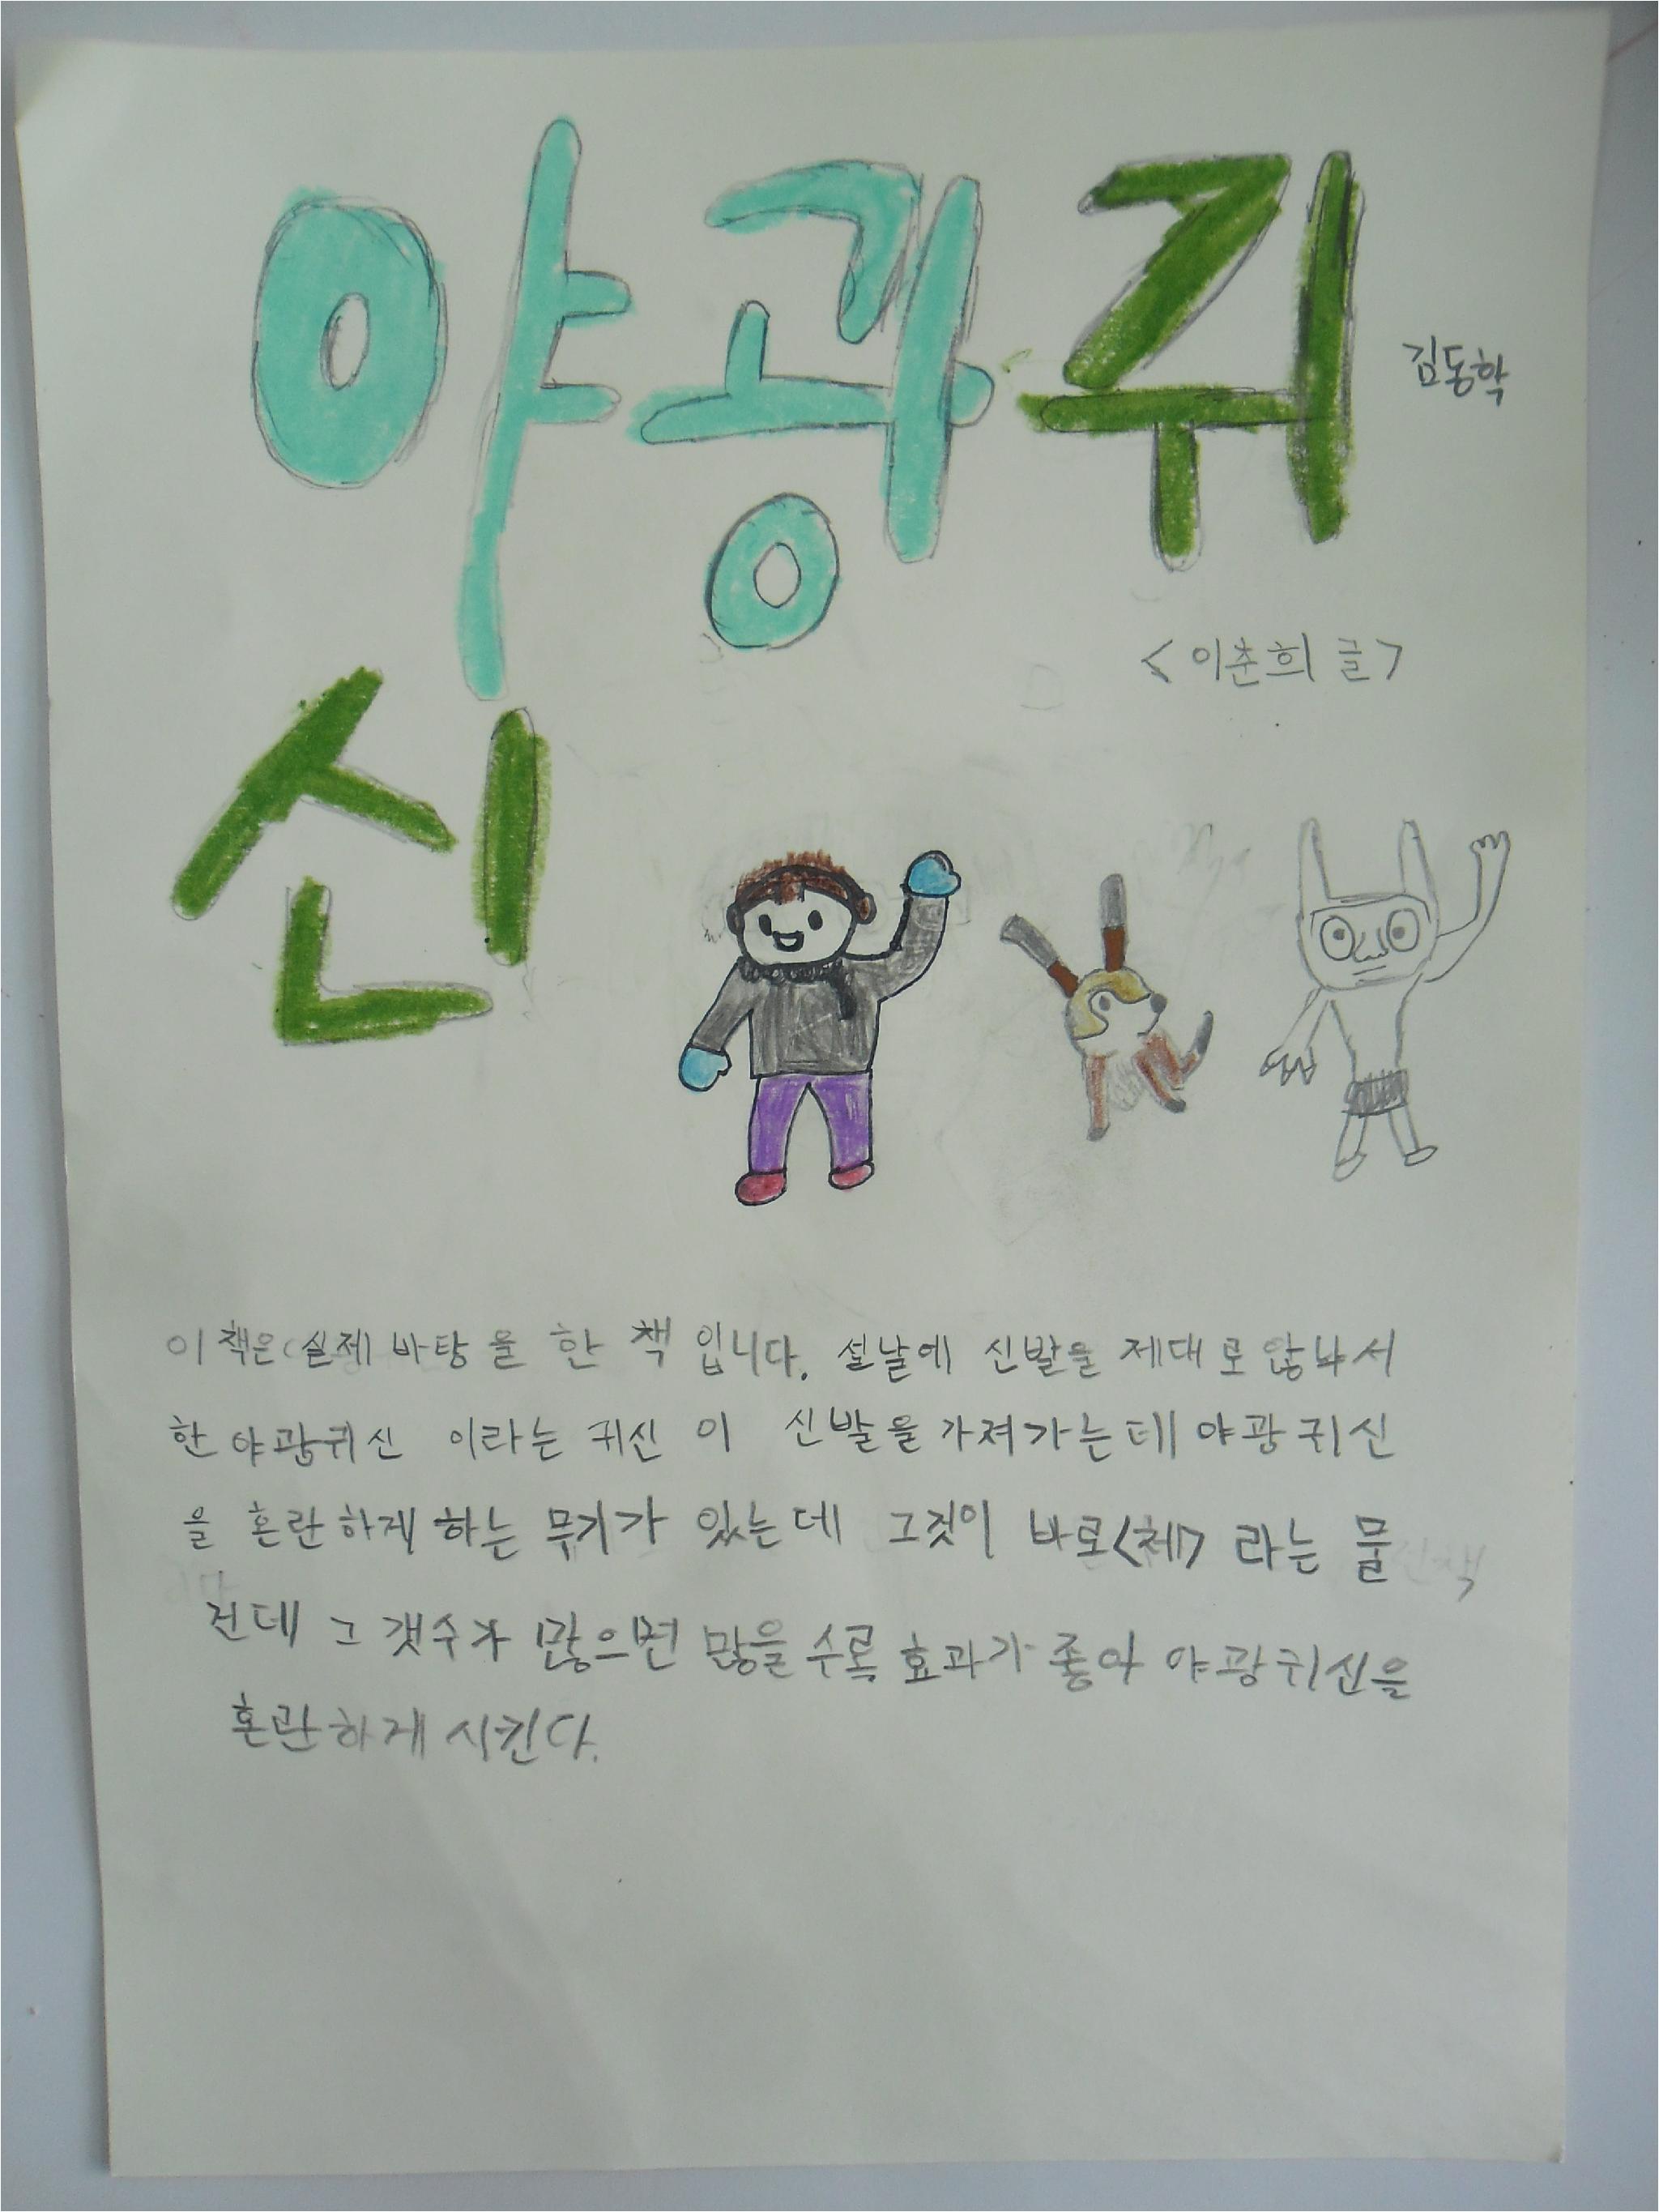 야광쥐
김동학
<이춘희 글>
신
이 책은 실제 바탕을 한 책 입니다. 설날에 신발을 제대로않놔서
한 야광귀신 이라는 귀신 이 신발을 가져가는데 야광귀신
을 혼란하게 하는 무기가 있는데 그것이 바로<체> 라는 물
건데 그 갯수가 많으면 많을 수록 효과가 좋아 야광귀신을
혼란하게 시킨다.